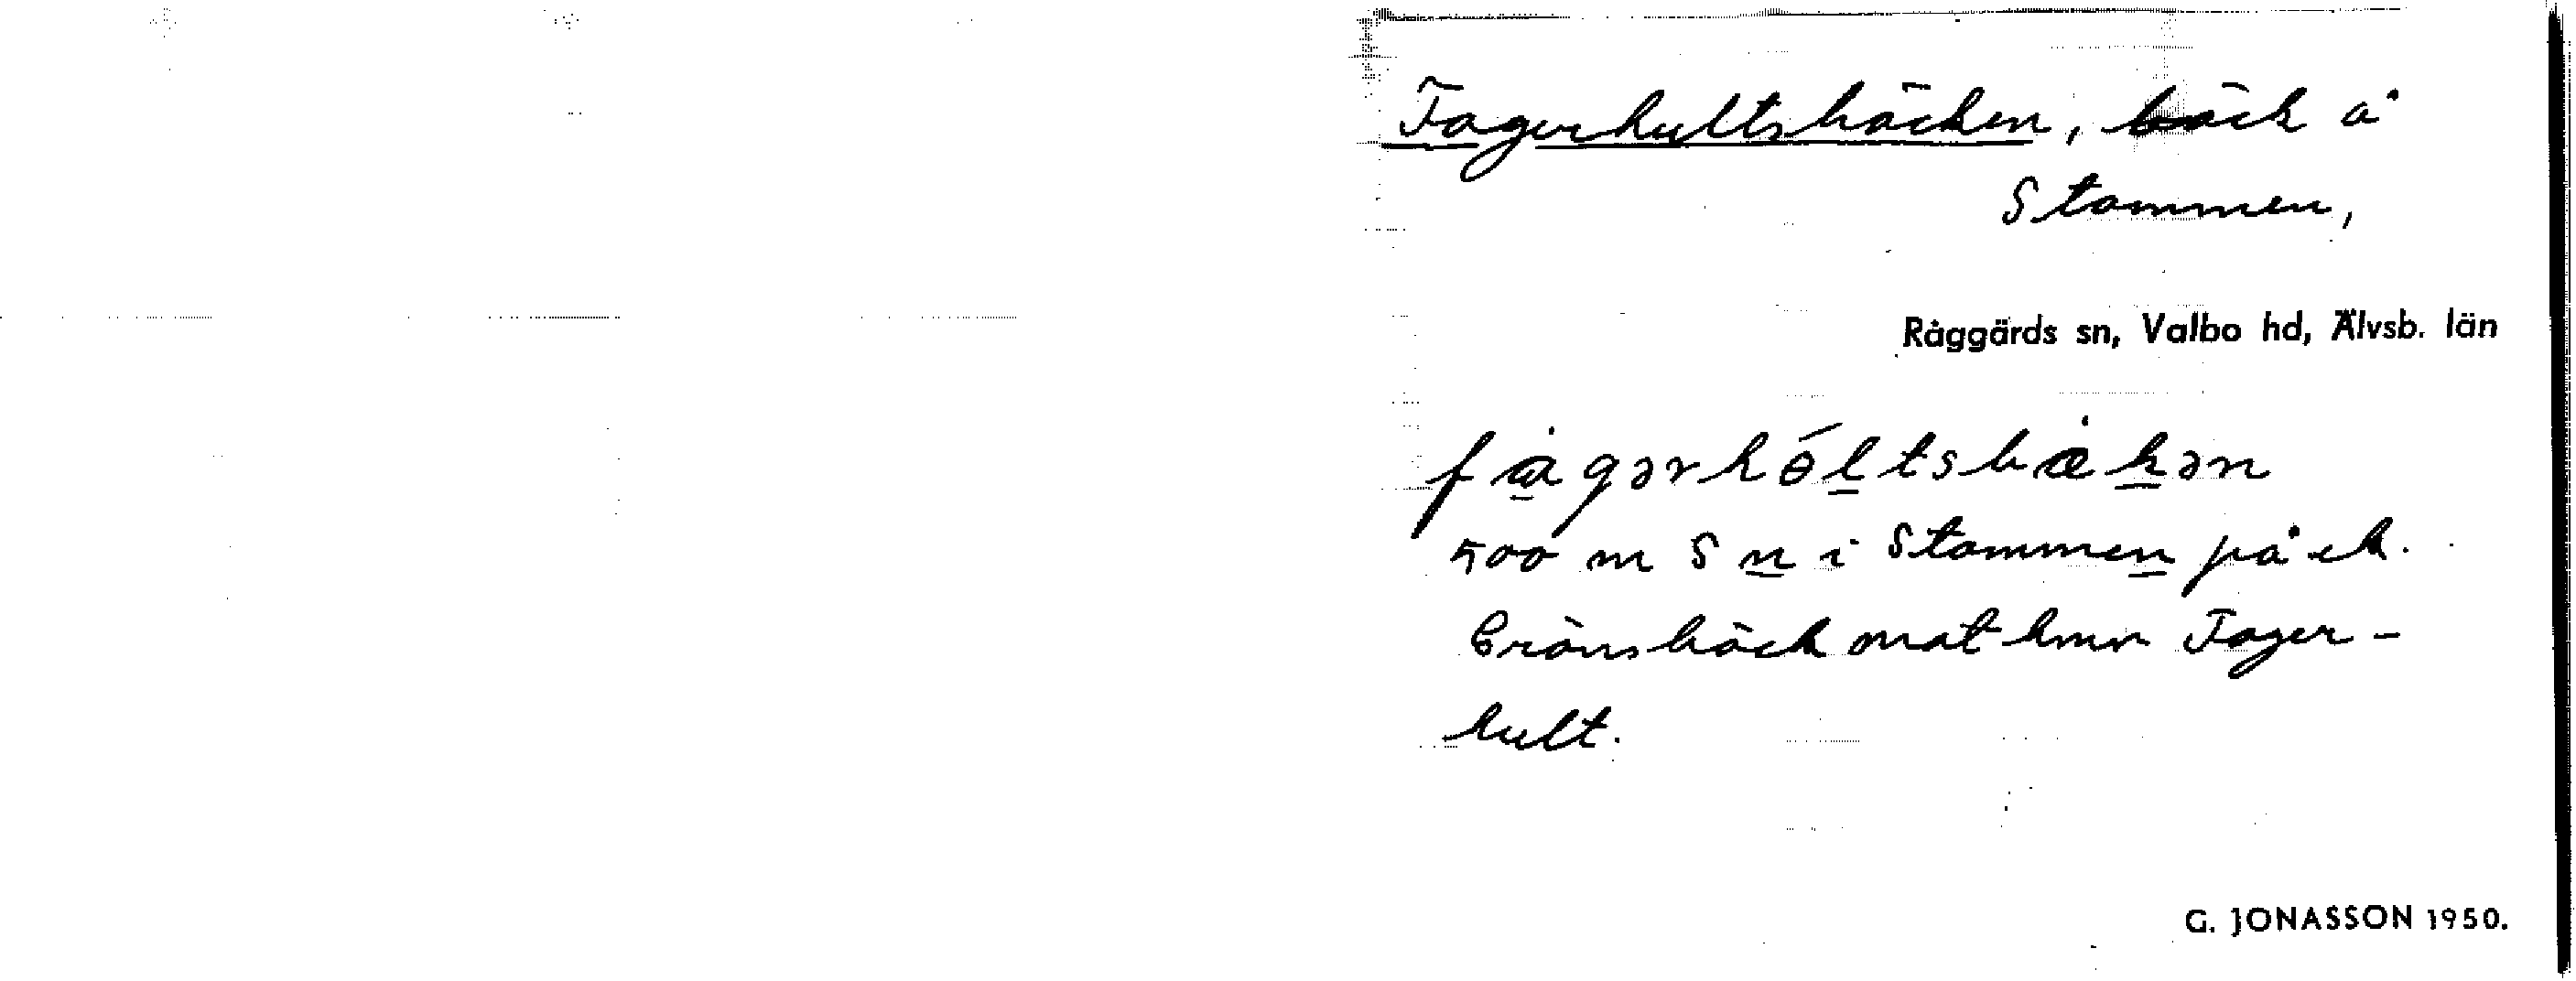 Fagerhultsbäcken, bäck å
Stommen,
Råggärds sn, Valbo hd, Älvsb. län
fàgərhóltsbækən
500 m S n i Stommen på ek.
Gränsbäck mot hmn Fager-
hult.
G. JONASSON 1950.